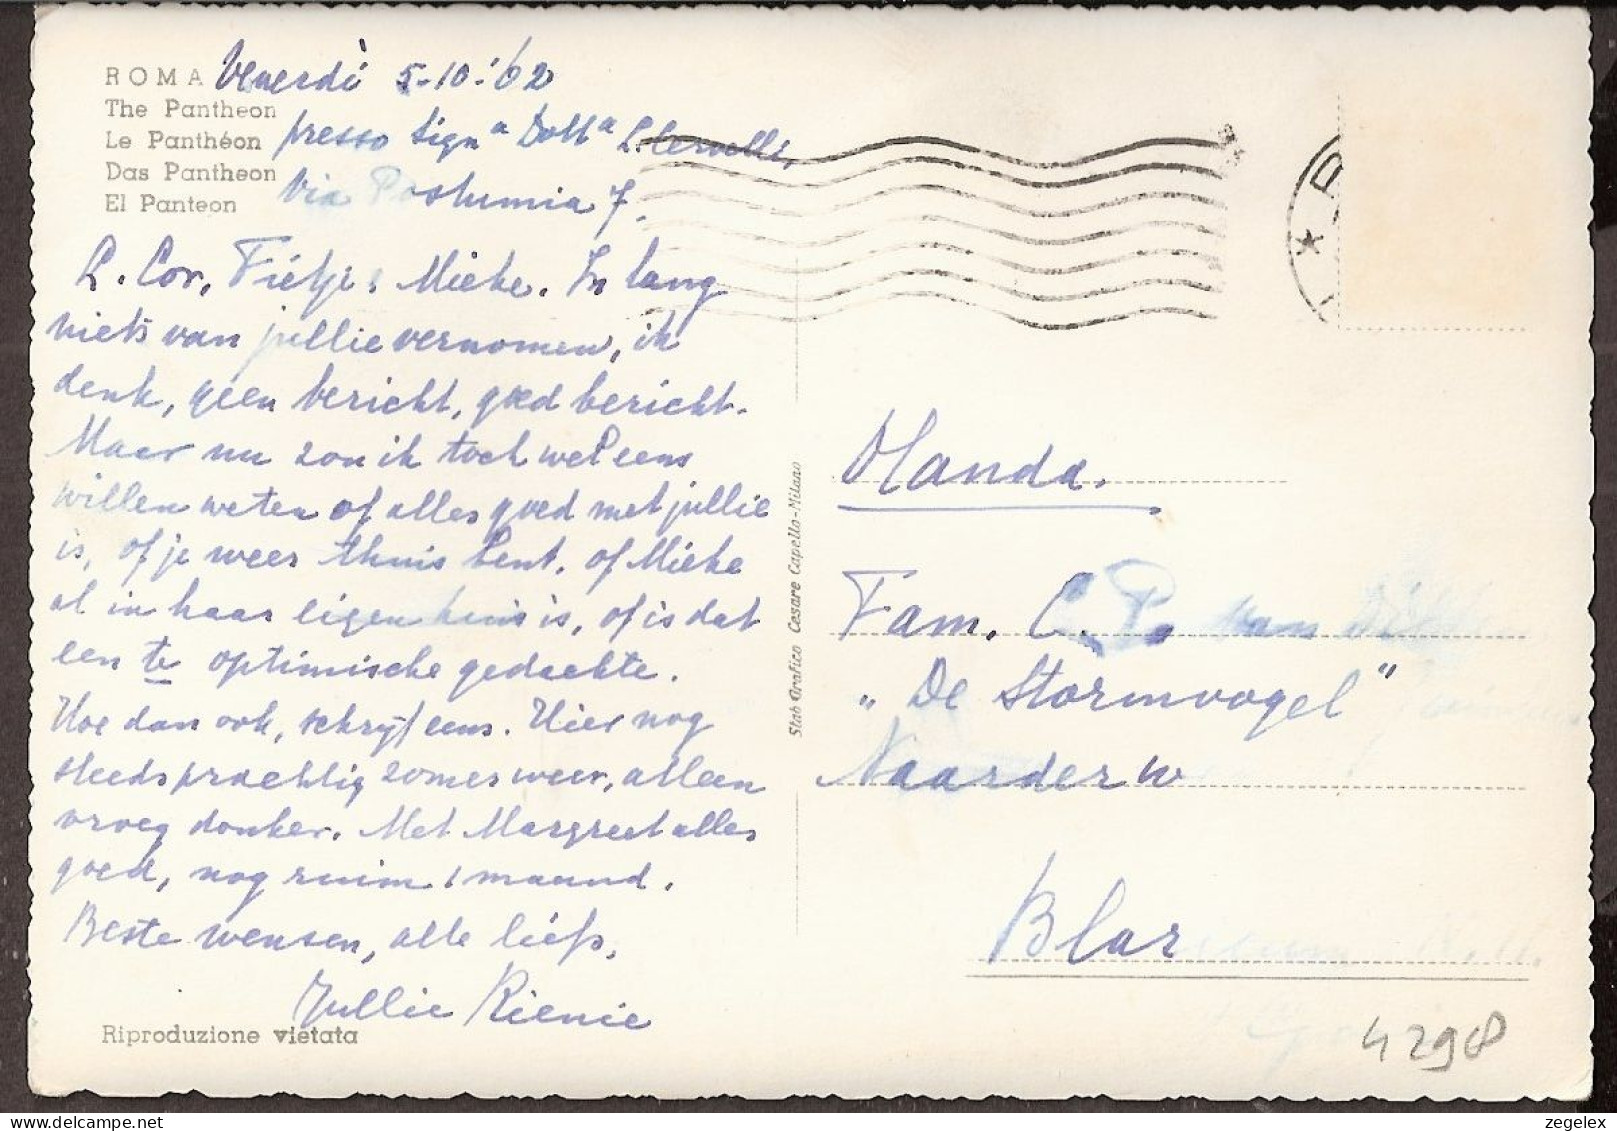 ROMA Venerdì 5-10-'62
The Pantheon
Le Panthéon presso Signᵃ Dottᵃ
Das Pantheon
El Panteon Via Postumia 7.
L. Cor, Fietje, Mieke. In lang
niets van jullie vernomen, ik
denk, geen bericht, goed bericht.
Maar nu zou ik toch wel eens
willen weten of alles goed met jullie
is, of je weer thuis bent, of Mieke
al in haar eigen huis is, of is dat
een te optimische gedachte.
Hoe dan ook, schrijf eens. Hier nog
steeds prachtig zomerweer, alleen
vroeg donker. Met Margreet alles
goed, nog ruim 1 maand.
Beste wensen, alle liefs,
Jullie Rienie
Riproduzione vietata
Stab Grafico Cesare Capello-Milano
Olanda.
Fam. C. P. van
"De Stormvogel"
Naarderw
Blar
4298
zegelex